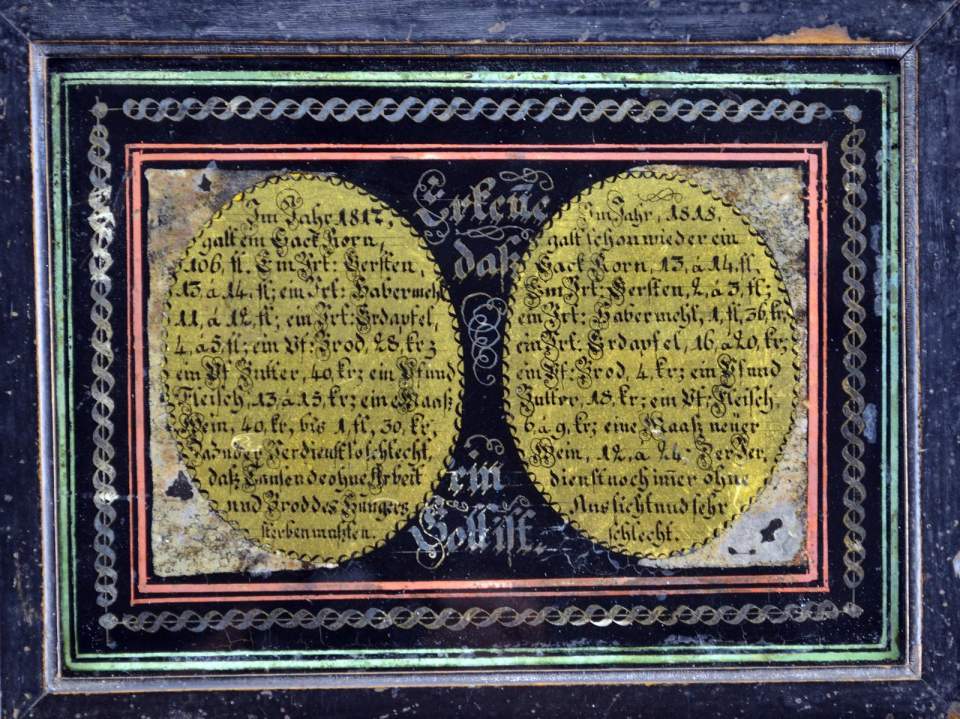 Im Jahr 1817,
galt ein Sack Korn,
106, fl. Ein Vrt: Gersten,
13 á 14. fl; ein Vrt: Habermehl
11, á 12, fl; ein Vrt: Erdapfel,
4, á 5 fl; ein Pf: Brod, 28, kr;
ein Pf Butter, 40, kr; ein Pfund
Fleisch, 13 á 15, kr; eine Maaß
Wein, 40, kr, bis 1, fl, 30, kr,
der Verdienst so schlecht,
daß Tausende ohne Arbeit
und Brod des Hungers
sterben mußten.
Erkeñe
daß
ein
Gott ist.
Im Jahr, 1818,
galt schon wieder ein
Sack Korn, 13, á 14, fl,
Ein Vrt: Gersten, 2, á 3, fl;
ein Vrt: Habermehl, 1, fl, 36, kr,
ein Vrt: Erdapfel, 16, á 20, kr;
ein Pf: Brod, 4, kr; ein Pfund
Butter, 18, kr; ein Pf: Fleisch,
6 á 9, kr; eine Maaß neüer
Wein, 12, á 24; Der Ver,
dienst noch im̃er ohne
Aussicht und sehr
schlecht.